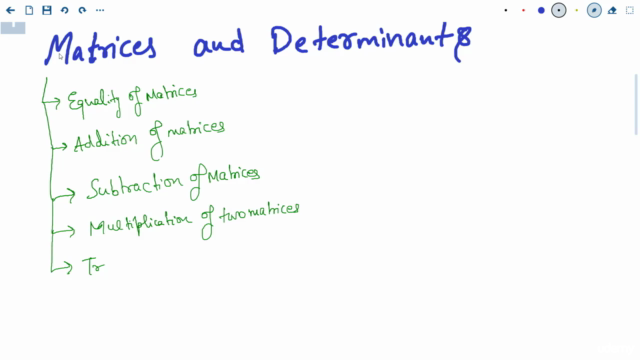 Matrices and Determinants
Equality of Matrices
Addition of matrices
Subtraction of Matrices
Multiplication of two matrices
Tr